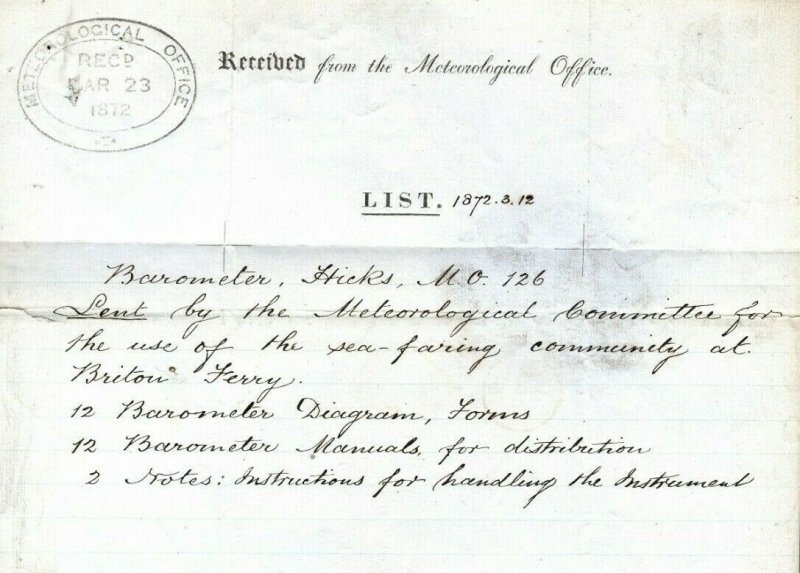 METEOROLOGICAL OFFICE
RECD
MAR 23
1872
Received from the Meteorological Office.
LIST. 1872.3.12
Barometer, Hicks, M.O. 126
Lent by the Meteorological Committee for
the use of the sea-faring community at
Briton Ferry.
12 Barometer Diagram, Forms
12 Barometer Manuals, for distribution
2 Notes: Instructions for handling the Instrument